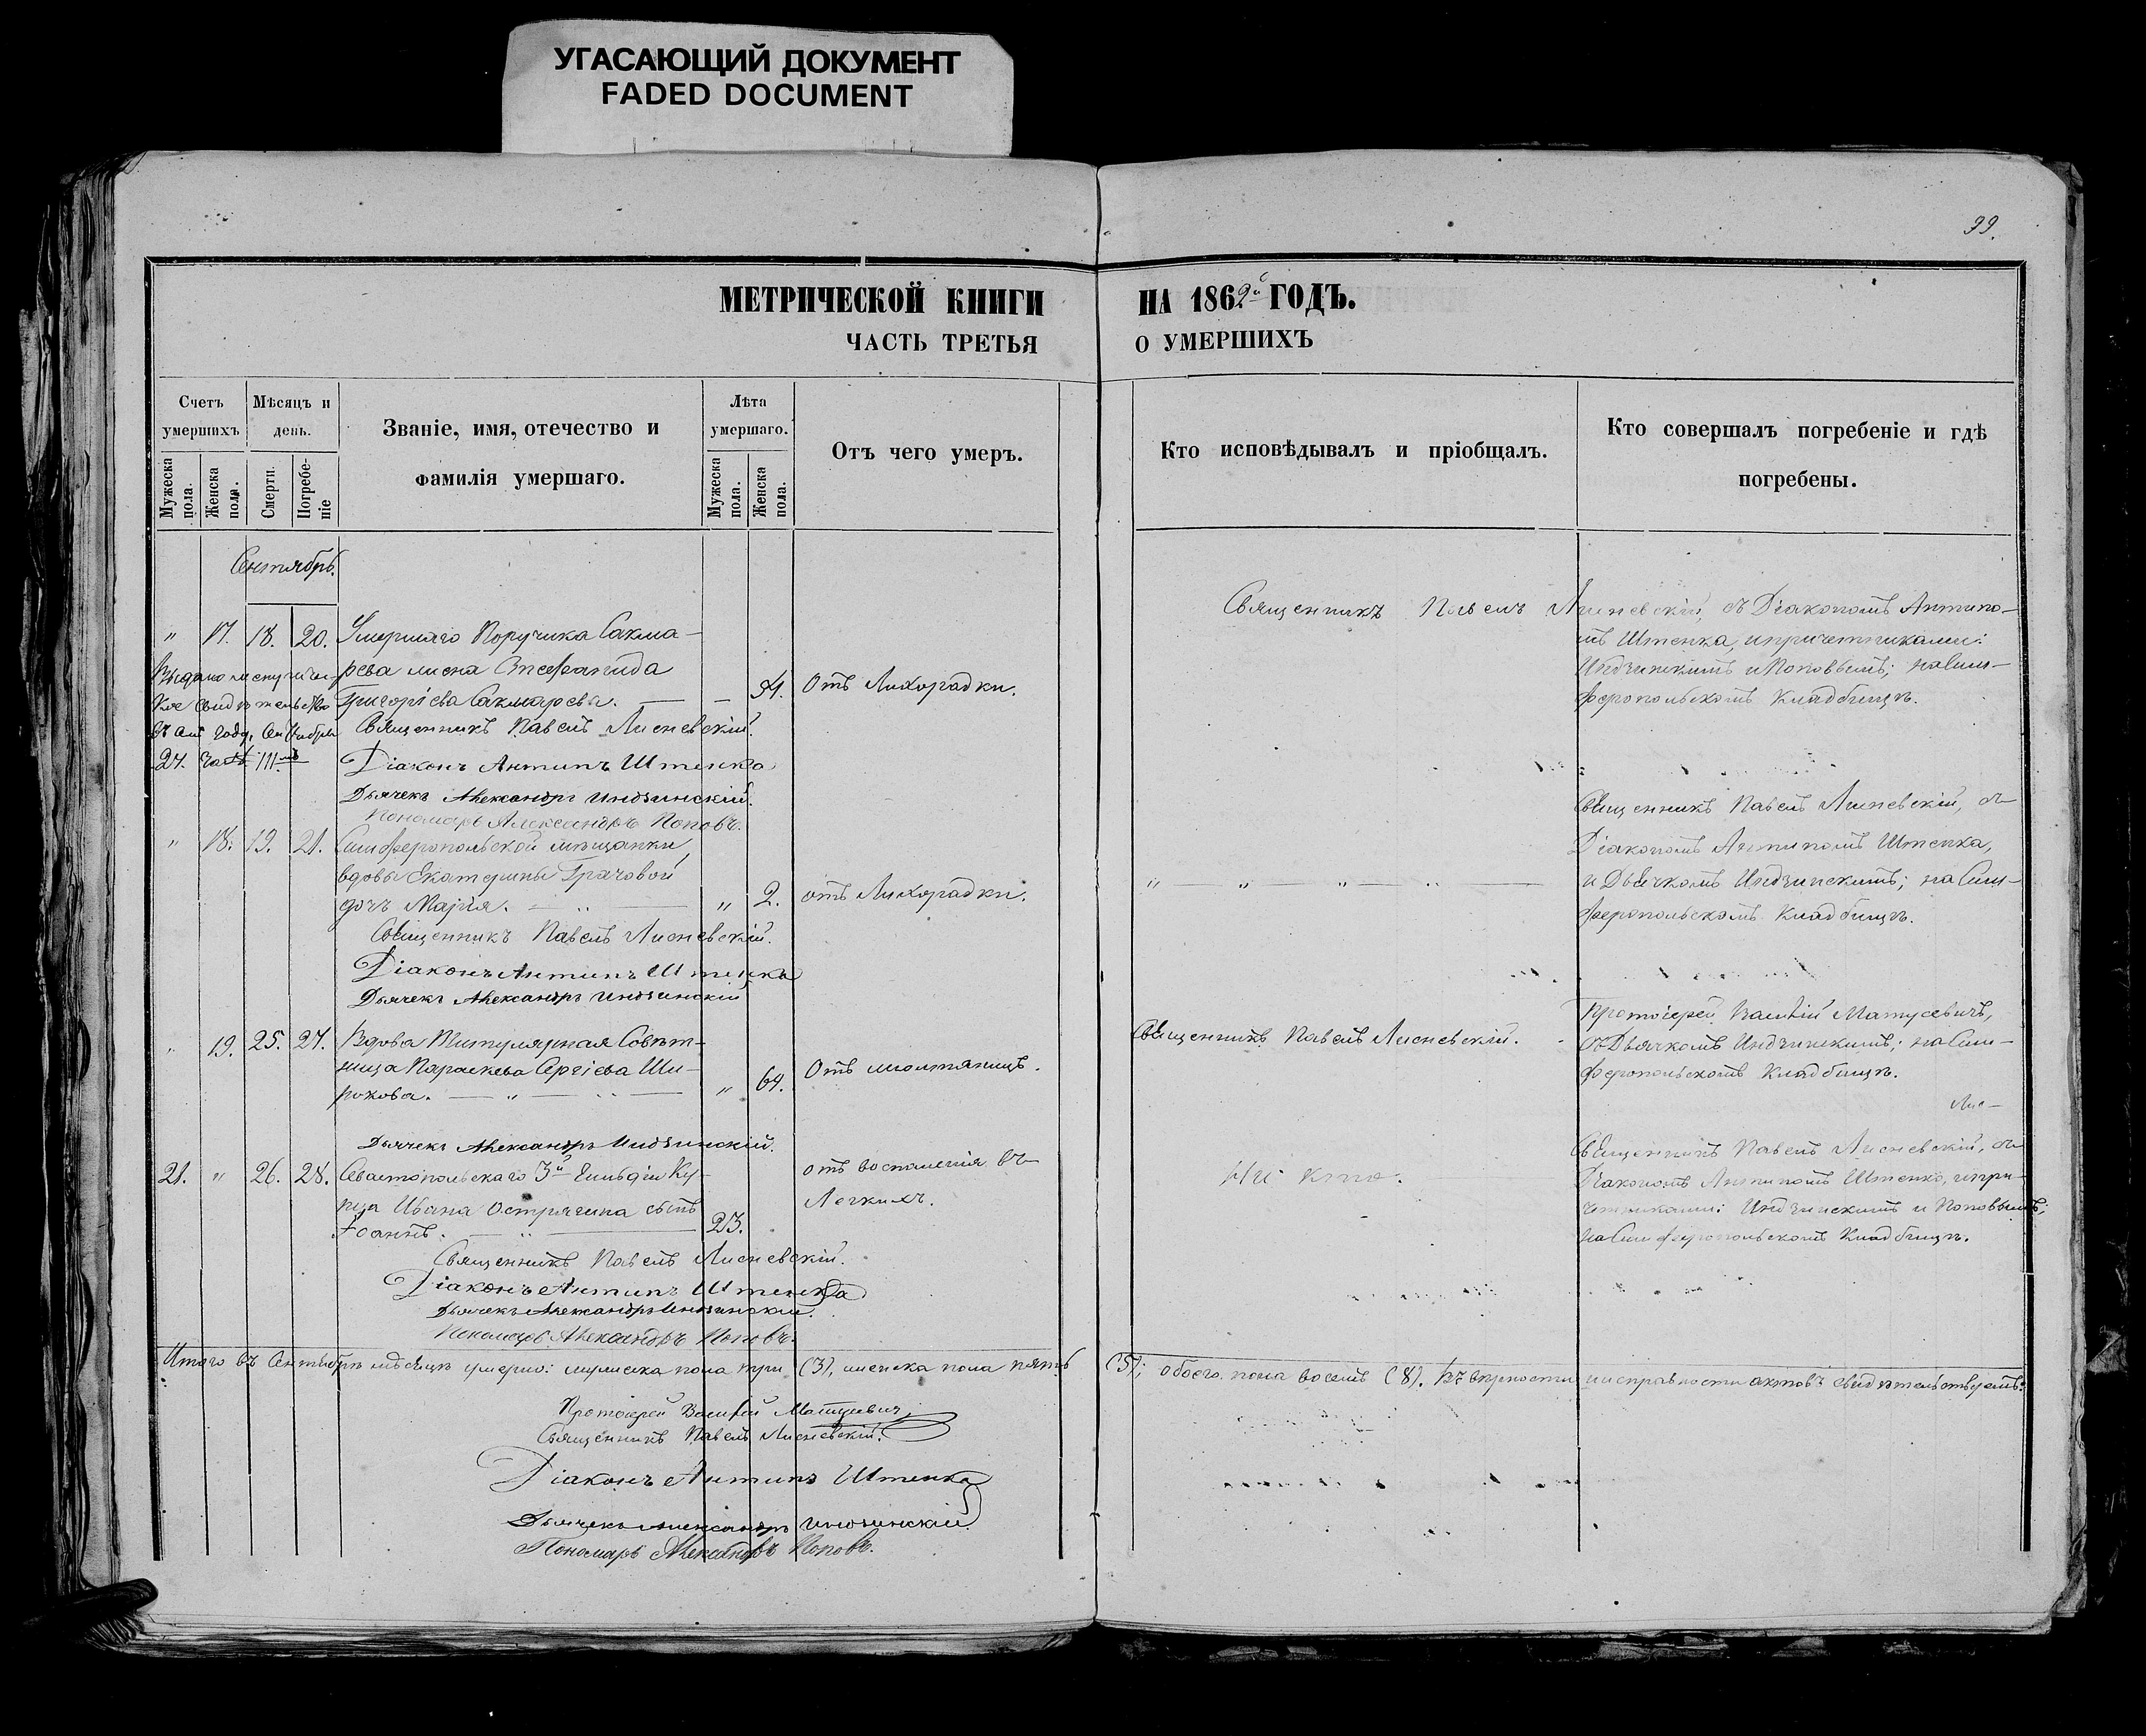 УГАСАЮЩИЙ ДОКУМЕНТ
FADED DOCUMENT
99.
МЕТРИЧЕСКОЙ КНИГИ НА 1862й ГОДЪ.
ЧАСТЬ ТРЕТЬЯ О УМЕРШИХЪ
Счетъ умершихъ
Мужеска пола.
Женска пола.
Мѣсяцъ и день.
Смерти.
Погребеніе
Званіе, имя, отечество и фамилія умершаго.
Лѣта умершаго.
Мужеска пола.
Женска пола.
Отъ чего умеръ.
Кто исповѣдывалъ и пріобщалъ.
Кто совершалъ погребеніе и гдѣ погребены.
Сентябрь.
" 17. 18. 20. Умершаго Поручика Сакма-
рева жена Епефанида
Григоріева Сакмарева. — — 34. Отъ Лихорадки.
Священникъ Павелъ Лисневскій, съ Діакономъ Антипо-
мъ Штепка, и причетниками:
Индзинскимъ и Поповымъ; на Сим-
феропольскомъ Кладбищѣ.
24. Часть III.
Священникъ Павелъ Лисневскій.
Діаконъ Антипъ Штепка
Дьячекъ Александръ Индзинскій.
Пономарь Александръ Поповъ.
" 18. 19. 21. Симферопольской мѣщанки
вдовы Екатерины Грачовой
дочь Марія. — " — " 2. отъ Лихорадки.
" — " — " — " —
Священникъ Павелъ Лисневскій, съ
Діакономъ Антипомъ Штепка,
и Дьячкомъ Индзинскимъ; на Сим-
феропольскомъ Кладбищѣ.
Священникъ Павелъ Лисневскій.
Діаконъ Антипъ Штепка
Дьячекъ Александръ Индзинскій
" 19. 25. 27. Вдова Титулярная Совѣт-
ница Параскева Сергіева Ши-
рокова. — " — " — " 64. Отъ
Священникъ Павелъ Лисневскій.
Протоіерей Василій Матусевичъ,
съ Дьячкомъ Индзинскимъ; на Сим-
феропольскомъ Кладбищѣ.
Лис-
Дьячекъ Александръ Индзинскій.
21. " 26. 28. Севастопольскаго 3й Гильдіи Ку-
пца Ивана Острягина сынъ
Іоаннъ. — " — 23.
отъ воспаленія въ
Легкихъ.
Ни кто.
Священникъ Павелъ Лисневскій, съ
Діакономъ Антипомъ Штепко, и при-
четниками: Индзинскимъ и Поповымъ;
на Симферопольскомъ Кладбищѣ.
Священникъ Павелъ Лисневскій.
Діаконъ Антипъ Штепка
Дьячекъ Александръ Индзинскій.
Пономарь Александръ Поповъ.
Итого въ Сентябрѣ мѣсяцѣ умерло: мужеска пола три (3), женска пола пять (5); обоего пола восемь (8). Въ вѣрности и исправности актовъ свидѣтельствуемъ:
Протоіерей Василій Матусевичъ,
Священникъ Павелъ Лисневскій.
Діаконъ Антипъ Штепка
Дьячекъ Александръ Индзинскій
Пономарь Александръ Поповъ.